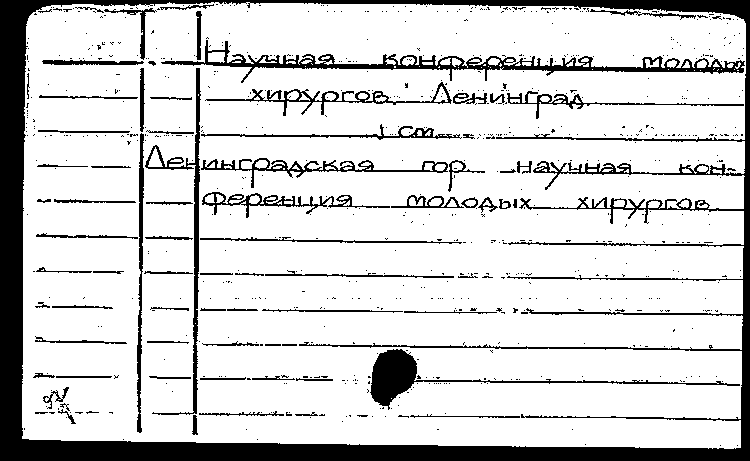 Научная конференция молодых
хирургов. Ленинград
см.
Ленинградская гор. научная кон-
ференция молодых хирургов